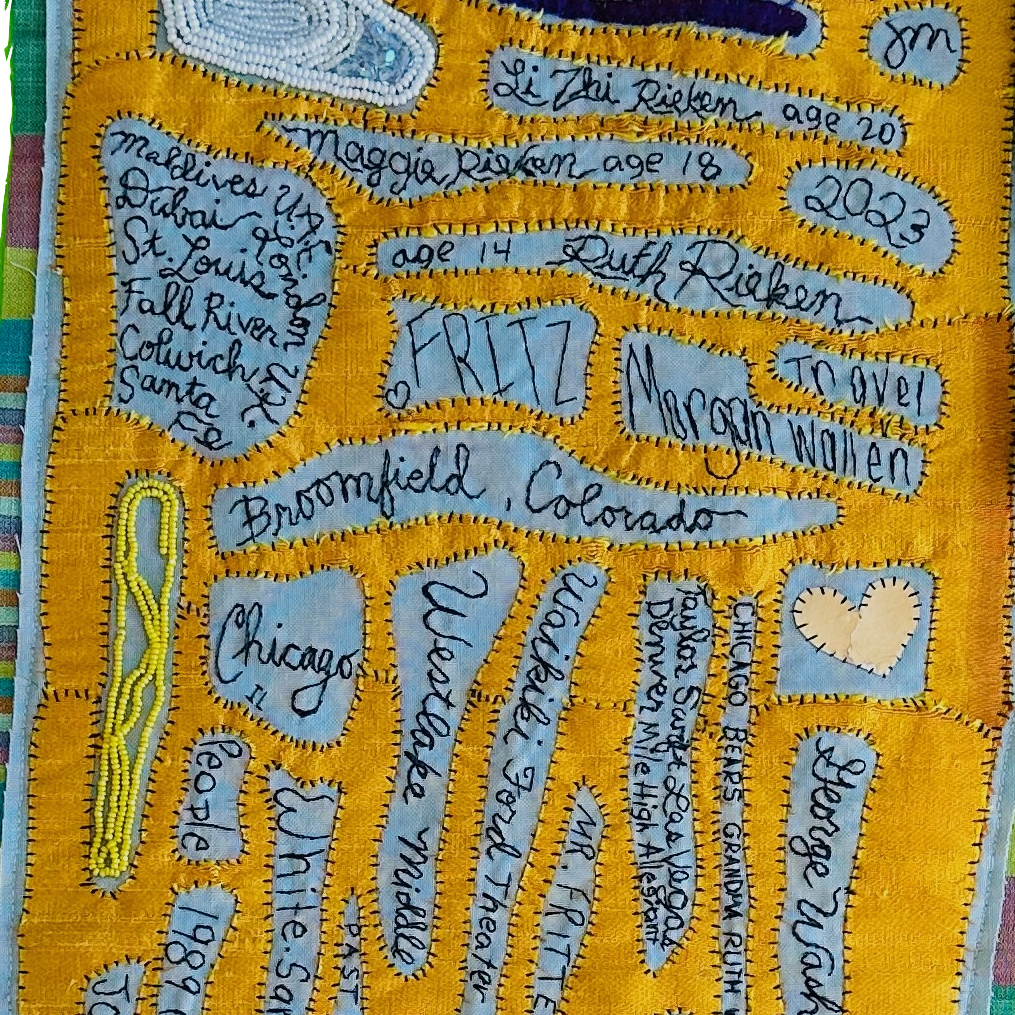 Jm
Li Zhi Rieken age 20
Maggie Rieken age 18
2023
Maldives U.A.E
Dubai London U.K.
St. Louis
Fall River
Colwich
Santa
Fe
age 14 Ruth Rieken
FRITZ
Morgan Wallen
Travel
Broomfield, Colorado
Chicago
IL
Westlake Middle
Waikiki Ford Theater
Taylor Swift Las Vegas
Denver Mile High Allegiant
CHICAGO BEARS GRANDMA RUTH
People
White
MR. FRITTE
George Wash
1989
PAST